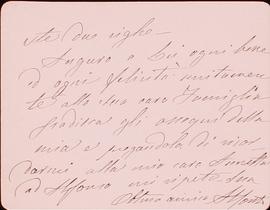 due righe –
Auguro a Lei ogni bene
ed ogni felicità unitamen-
te alla sua cara Famiglia
gradisca gli ossequi della
mia e pregandola di ricor-
darmi alla mia cara
ad Alfonso mi ripeto sua